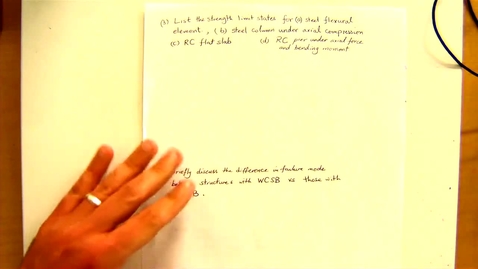 (3) List the strength limit states for (a) steel flexural
element, (b) steel column under axial compression
(c) RC flat slab (d) RC pier under axial force
and bending moment
briefly discuss the difference in failure mode
structures with WCSB vs those with